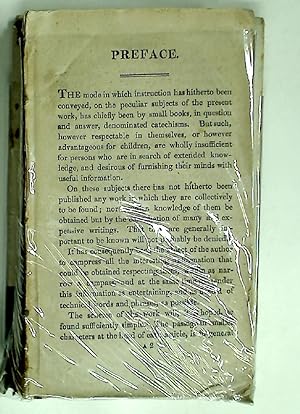 PREFACE.
THE mode in which instruction has hitherto been
conveyed, on the peculiar subjects of the present
work, has chiefly been by small books, in question
and answer, denominated catechisms. But such,
however respectable in themselves, or however
advantageous for children, are wholly insufficient
for persons who are in search of extended know-
ledge, and desirous of furnishing their minds with
useful information.
On these subjects there has not hitherto been
published any work in which they are collectively
to be found; nor knowledge of them be
obtained but by the of many ex-
pensive writings. That are generally im-
portant to be known will not probably be denied.
It has consequently object of the author
to compress all the interesting information that
could be obtained respecting within as nar-
row a compass, and at the same render
this information as entertaining, and of
technical words and phrases, as possible.
The scheme of the work will, it is hoped, be
found sufficiently simple. The passage in small
characters at the head of each article, is in general
A 2